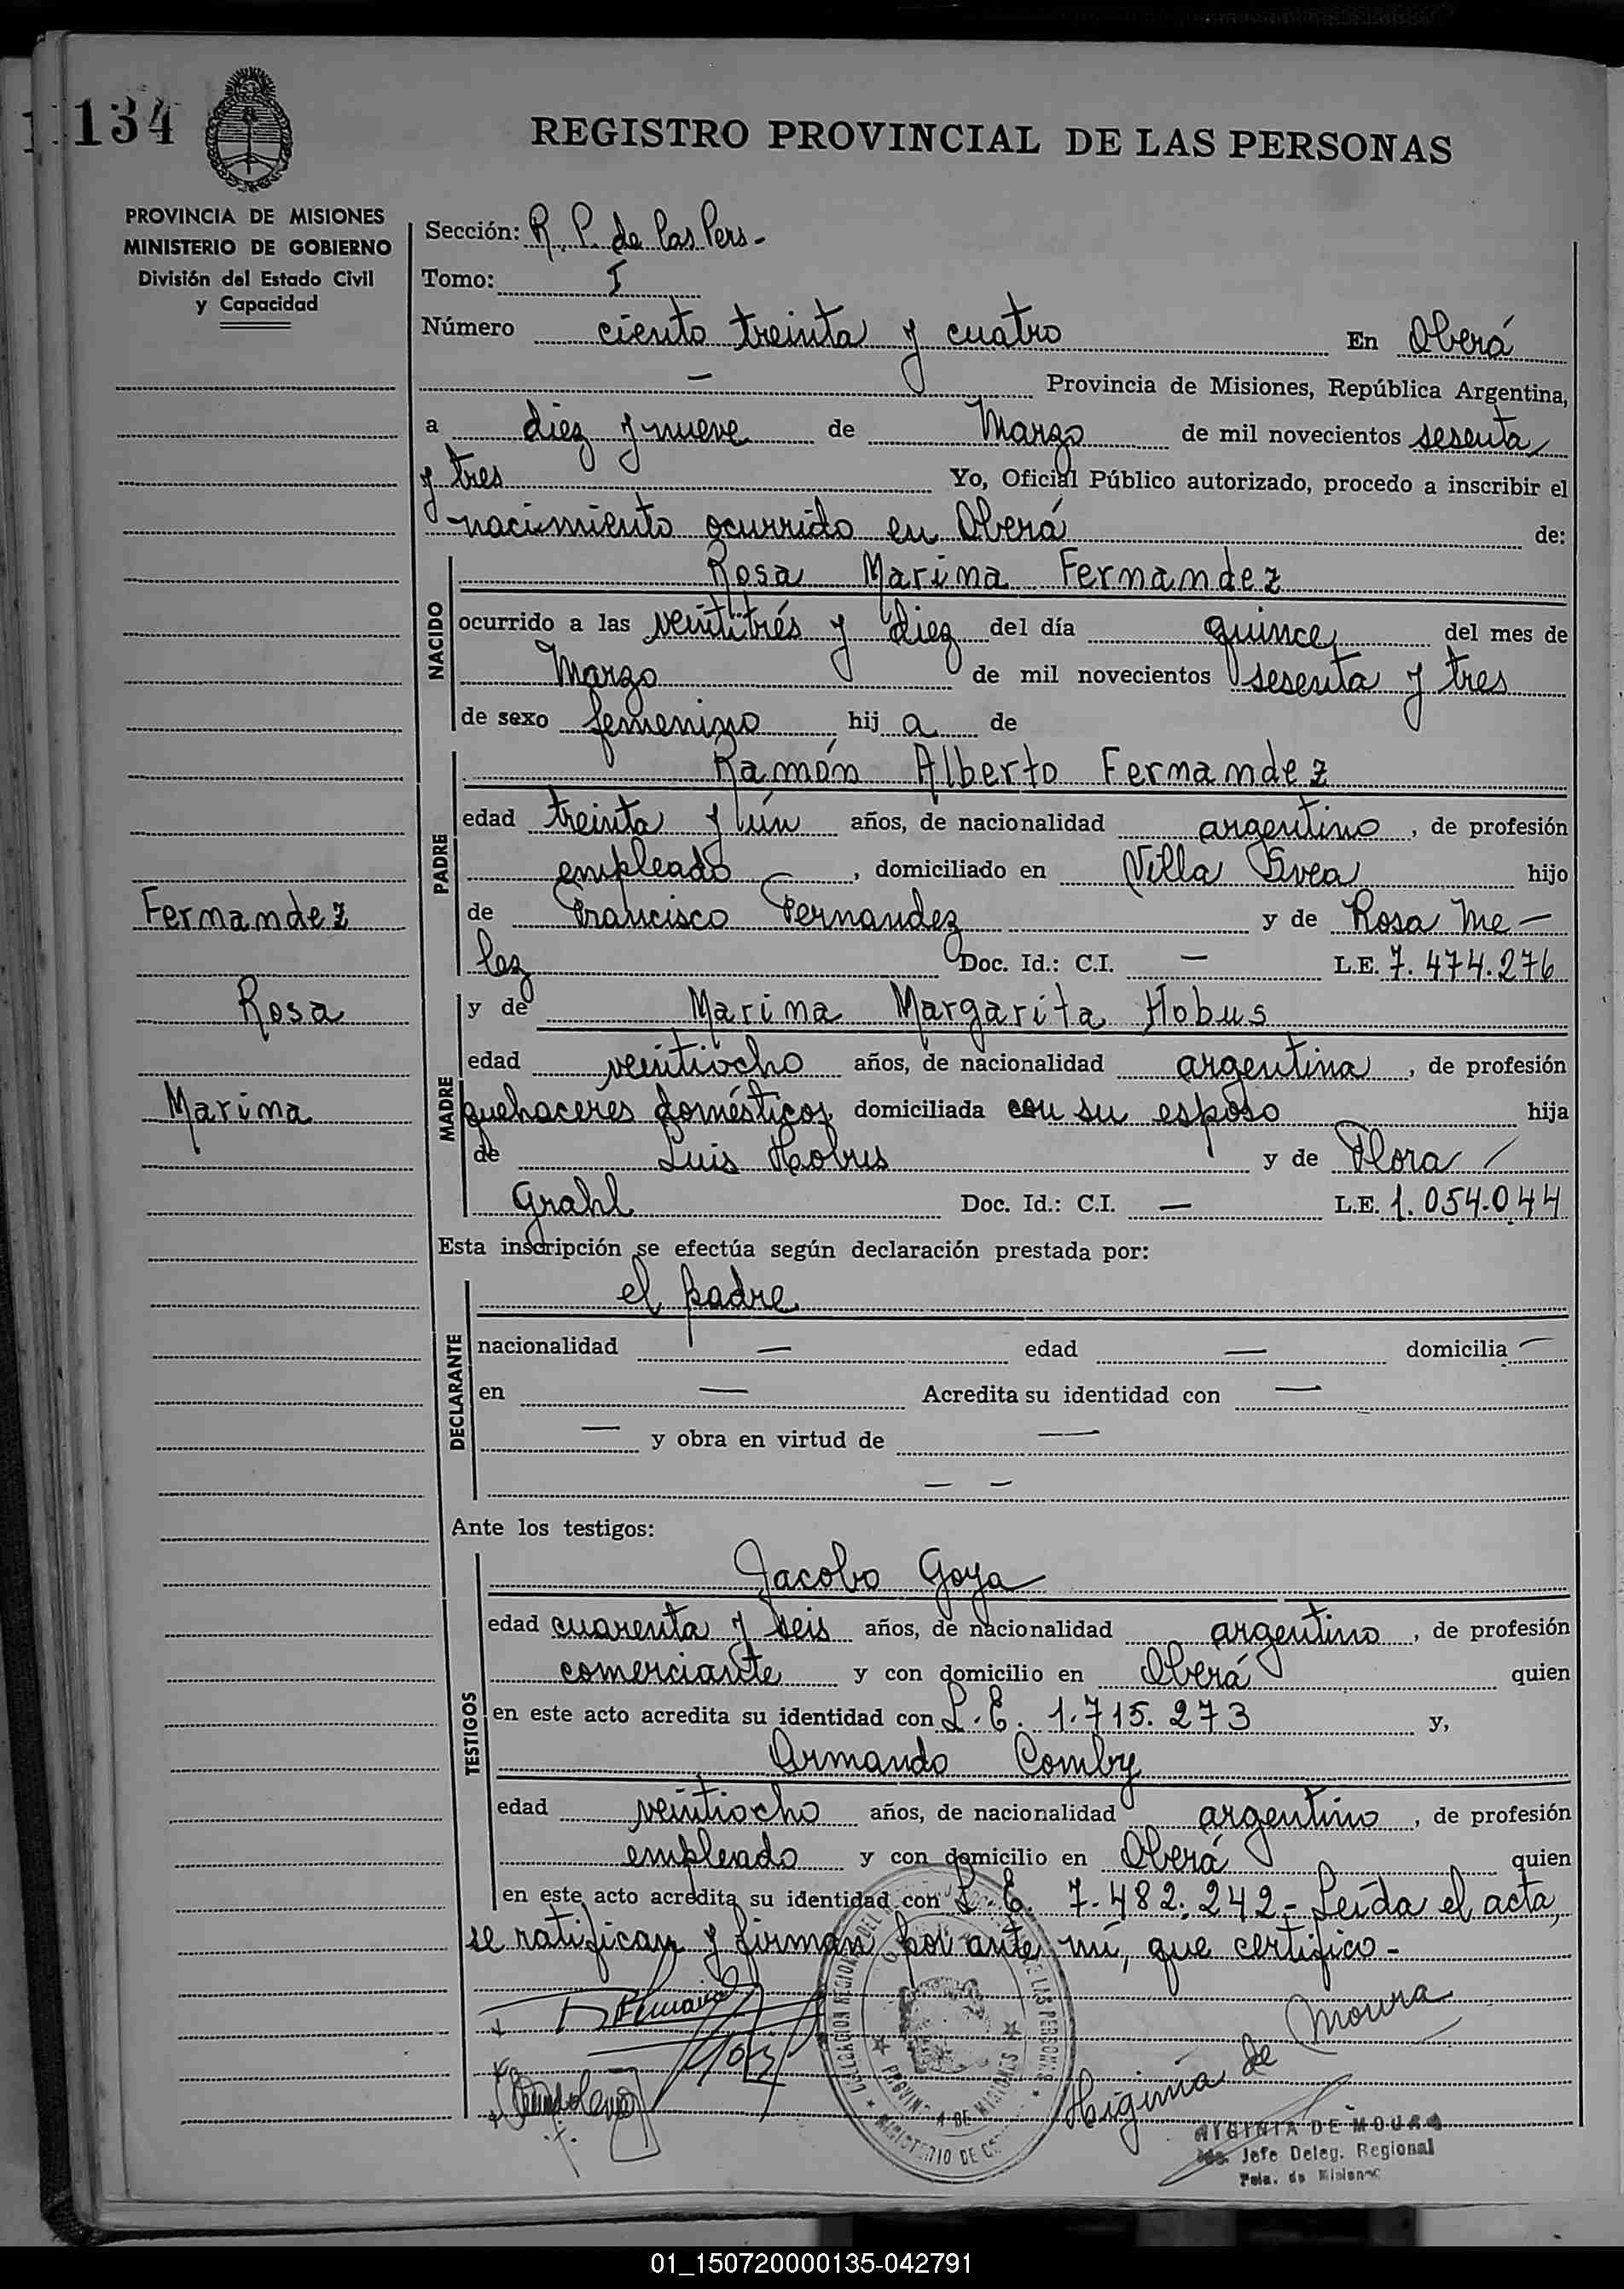 134
REGISTRO PROVINCIAL DE LAS PERSONAS
PROVINCIA DE MISIONES
MINISTERIO DE GOBIERNO
División del Estado Civil
y Capacidad
Sección: R. P. de las Pers-
Tomo: I
Número ciento treinta y cuatro En Oberá
— Provincia de Misiones, República Argentina,
a diez y nueve de Marzo de mil novecientos sesenta
y tres Yo, Oficial Público autorizado, procedo a inscribir el
nacimiento ocurrido en Oberá de:
NACIDO
Rosa Marina Fernandez
ocurrido a las veintitrés y diez del día quince del mes de
Marzo de mil novecientos sesenta y tres
de sexo femenino hij a de
PADRE
Ramón Alberto Fernandez
edad treinta y ún años, de nacionalidad argentino, de profesión
empleado, domiciliado en Villa Svea hijo
de Francisco Fernandez y de Rosa Me-
lez Doc. Id.: C.I. — L.E. 7.474.276
Fernandez
Rosa
Marina
MADRE
y de Marina Margarita Hobus
edad veintiocho años, de nacionalidad argentina, de profesión
quehaceres domésticos, domiciliada con su esposo hija
de Luis Hobus y de Flora
Grahl Doc. Id.: C.I. — L.E. 1.054.044
Esta inscripción se efectúa según declaración prestada por:
DECLARANTE
el padre
nacionalidad — edad — domicilia —
en — Acredita su identidad con —
— y obra en virtud de —
— —
Ante los testigos:
TESTIGOS
Jacobo Goya
edad cuarenta y seis años, de nacionalidad argentino, de profesión
comerciante y con domicilio en Oberá quien
en este acto acredita su identidad con L.E. 1.715.273 y,
Armando Comby
edad veintiocho años, de nacionalidad argentino, de profesión
empleado y con domicilio en Oberá quien
en este acto acredita su identidad con L.E. 7.482.242.- Leída el acta,
se ratifican y firman por ante mí, que certifico.-
DELEGACION REGIONAL DEL LAS PERSONAS
PROVINCIA DE MISIONES
MINISTERIO DE
Higinia de Moura
HIGINIA DE MOURA
Jefe Deleg. Regional
Pcia. de Misiones
01_150720000135-042791